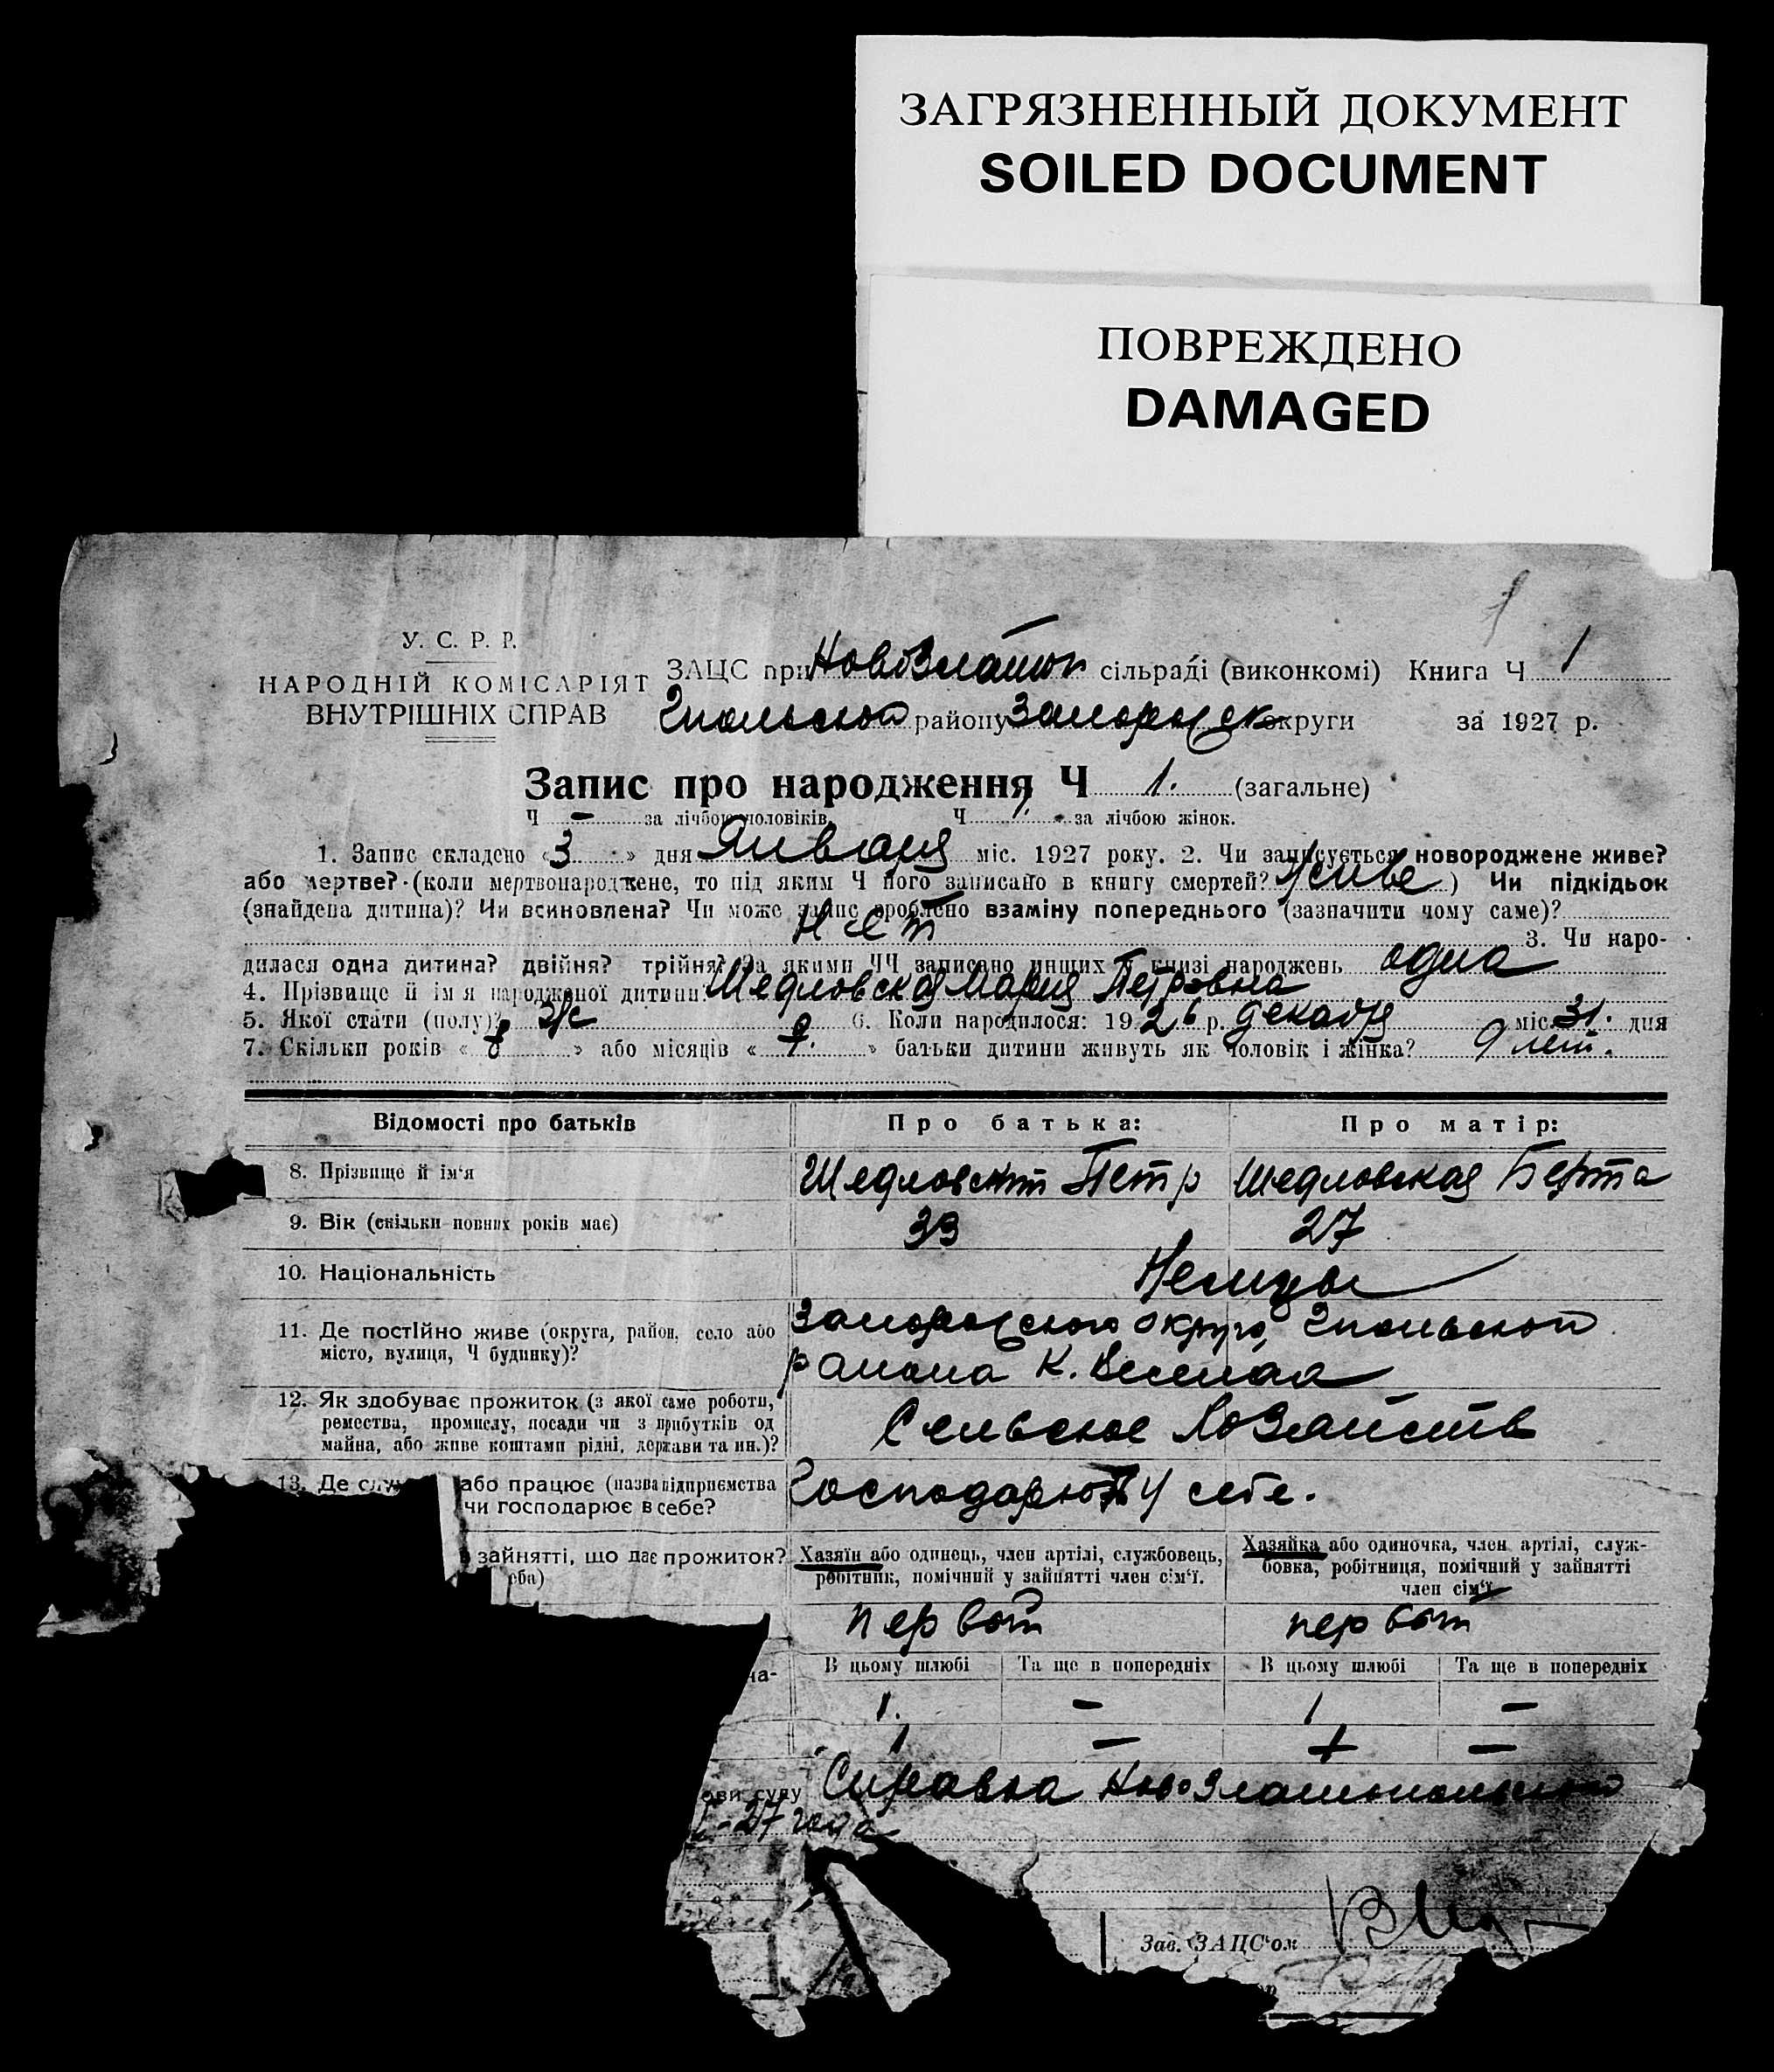 ЗАГРЯЗНЕННЫЙ ДОКУМЕНТ
SOILED DOCUMENT
ПОВРЕЖДЕНО
DAMAGED
У. С. Р. Р.
НАРОДНІЙ КОМІСАРІЯТ
ВНУТРІШНІХ СПРАВ
ЗАЦС при НовоЗлатоп сільраді (виконкомі) Книга Ч 1
району Запорожск округи за 1927 р.
Запис про народження Ч 1. (загальне)
Ч — за лічбою чоловіків. Ч 1 за лічбою жінок.
1. Запис складено «3» дня Января міс. 1927 року. 2. Чи записується новороджене живе?
або мертве? (коли мертвонароджене, то під яким Ч його записано в книгу смертей? живе) Чи підкідьок
(знайдена дитина)? Чи всиновлена? Чи може запис зроблено взаміну попереднього (зазначити чому саме)?
Нет 3. Чи наро-
дилася одна дитина? двійня? трійня? За якими ЧЧ записано инших в книзі народжень одна
4. Прізвище й ім'я народженої дитини Шедловская Мария Петровна
5. Якої стати (полу)? ж 6. Коли народилося: 1926 р. декабря міс. 31. дня
7. Скільки років « » або місяців « » батьки дитини живуть як чоловік і жінка? 9 лет.
Відомості про батьків Про батька: Про матір:
8. Прізвище й ім'я Шедловский Петр Шедловская Берта
9. Вік (скільки повних років має) 33 27
10. Національність Немцы
11. Де постійно живе (округа, район, село або
місто, вулиця, Ч будинку)?
Запорожского округа,
района К. Веселая
12. Як здобуває прожиток (з якої саме роботи,
ремества, промислу, посади чи з прибутків од
майна, або живе коштами рідні, держави та ин.)?
Сельское Хозяйств
13. Де слу або працює (назва підприємства
чи господарює в себе?
Господарюют у себе.
зайнятті, що дає прожиток?
оба)
Хазяїн або одинець, член артілі, службовець,
робітник, помічний у зайнятті член сім'ї.
Хазяйка або одиночка, член артілі, служ-
бовка, робітниця, помічний у зайнятті
член сім'ї
первый первый
на- В цьому шлюбі Та ще в попередніх В цьому шлюбі Та ще в попередніх
1. — 1 —
1 — 1 —
ови суду Справка НовоЗлатопольского
27 года
Зав. ЗАЦС'ом